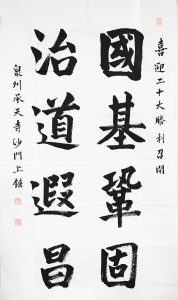 喜迎二十大勝利召開
國基鞏固
治道遐昌
泉州承天寺沙門上鏗